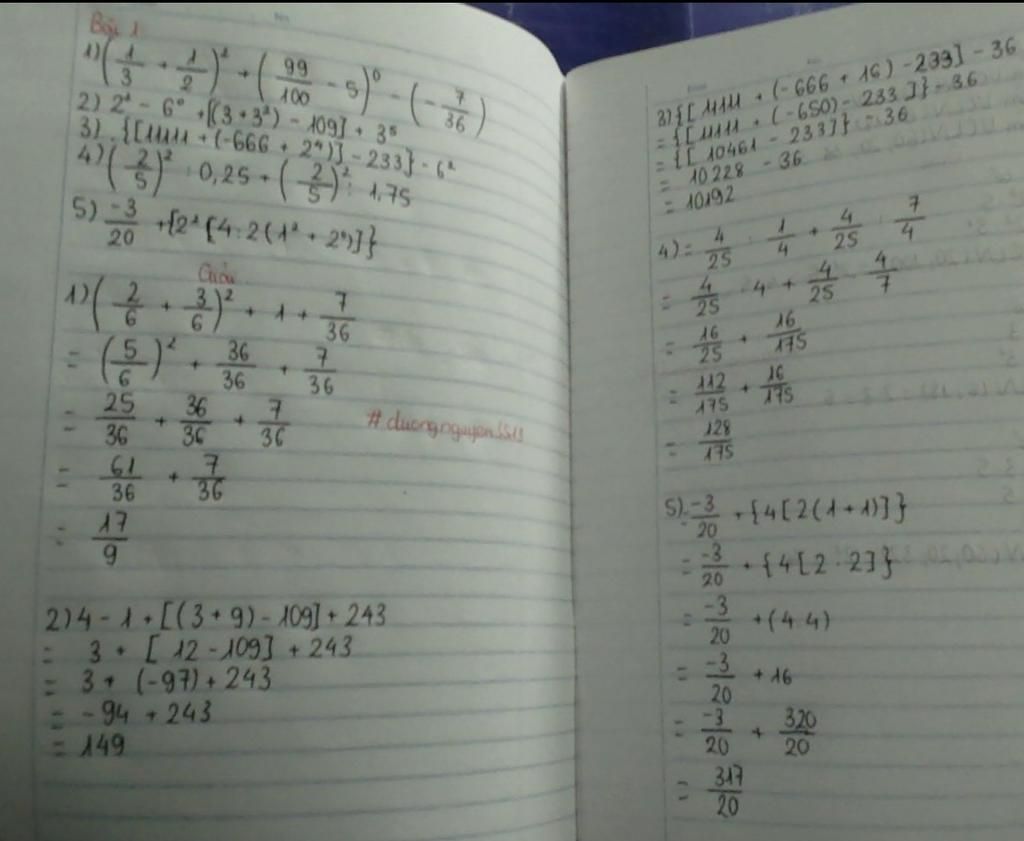 Bài 1
1) (1/3 + 1/2)² + (99/100 - 5)⁰ - (-7/36)
2) 2² - 6⁰ + [(3 + 3²) - 109] + 3⁵
3) {[11111 + (-666 + 2⁴)] - 233} - 6²
4) (2/5)² : 0,25 + (2/5)² : 1,75
5) -3/20 + {2² [4 : 2 (1² + 2⁰)]}
Giải
1) (2/6 + 3/6)² + 1 + 7/36
= (5/6)² + 36/36 + 7/36
= 25/36 + 36/36 + 7/36
#duongnguyen5513
= 61/36 + 7/36
= 17/9
2) 4 - 1 + [(3 + 9) - 109] + 243
= 3 + [12 - 109] + 243
= 3 + (-97) + 243
= -94 + 243
= 149
3) {[11111 + (-666 + 16) - 233] - 36
= {[11111 + (-650) - 233]} - 36
= {[10461 - 233]} - 36
= 10228 - 36
= 10192
4) = 4/25 : 1/4 + 4/25 : 7/4
= 4/25 . 4 + 4/25 . 4/7
= 16/25 + 16/175
= 112/175 + 16/175
= 128/175
5) -3/20 + {4 [2 (1 + 1)]}
= -3/20 + {4 [2 . 2]}
= -3/20 + (4.4)
= -3/20 + 16
= -3/20 + 320/20
= 317/20